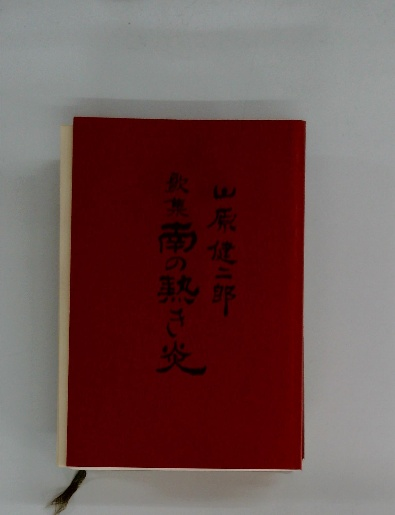 山原健二郎
歌集
南の熱き炎